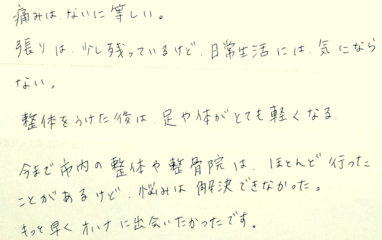 痛みは、ないに等しい。
張りは、少し残っているけど、日常生活には、気になら
ない。
整体をうけた後は、足や体がとても軽くなる。
今まで市内の整体や整骨院は、ほとんど行った
ことがあるけど、悩みは解決できなかった。
もっと早くオハナに出会いたかったです。